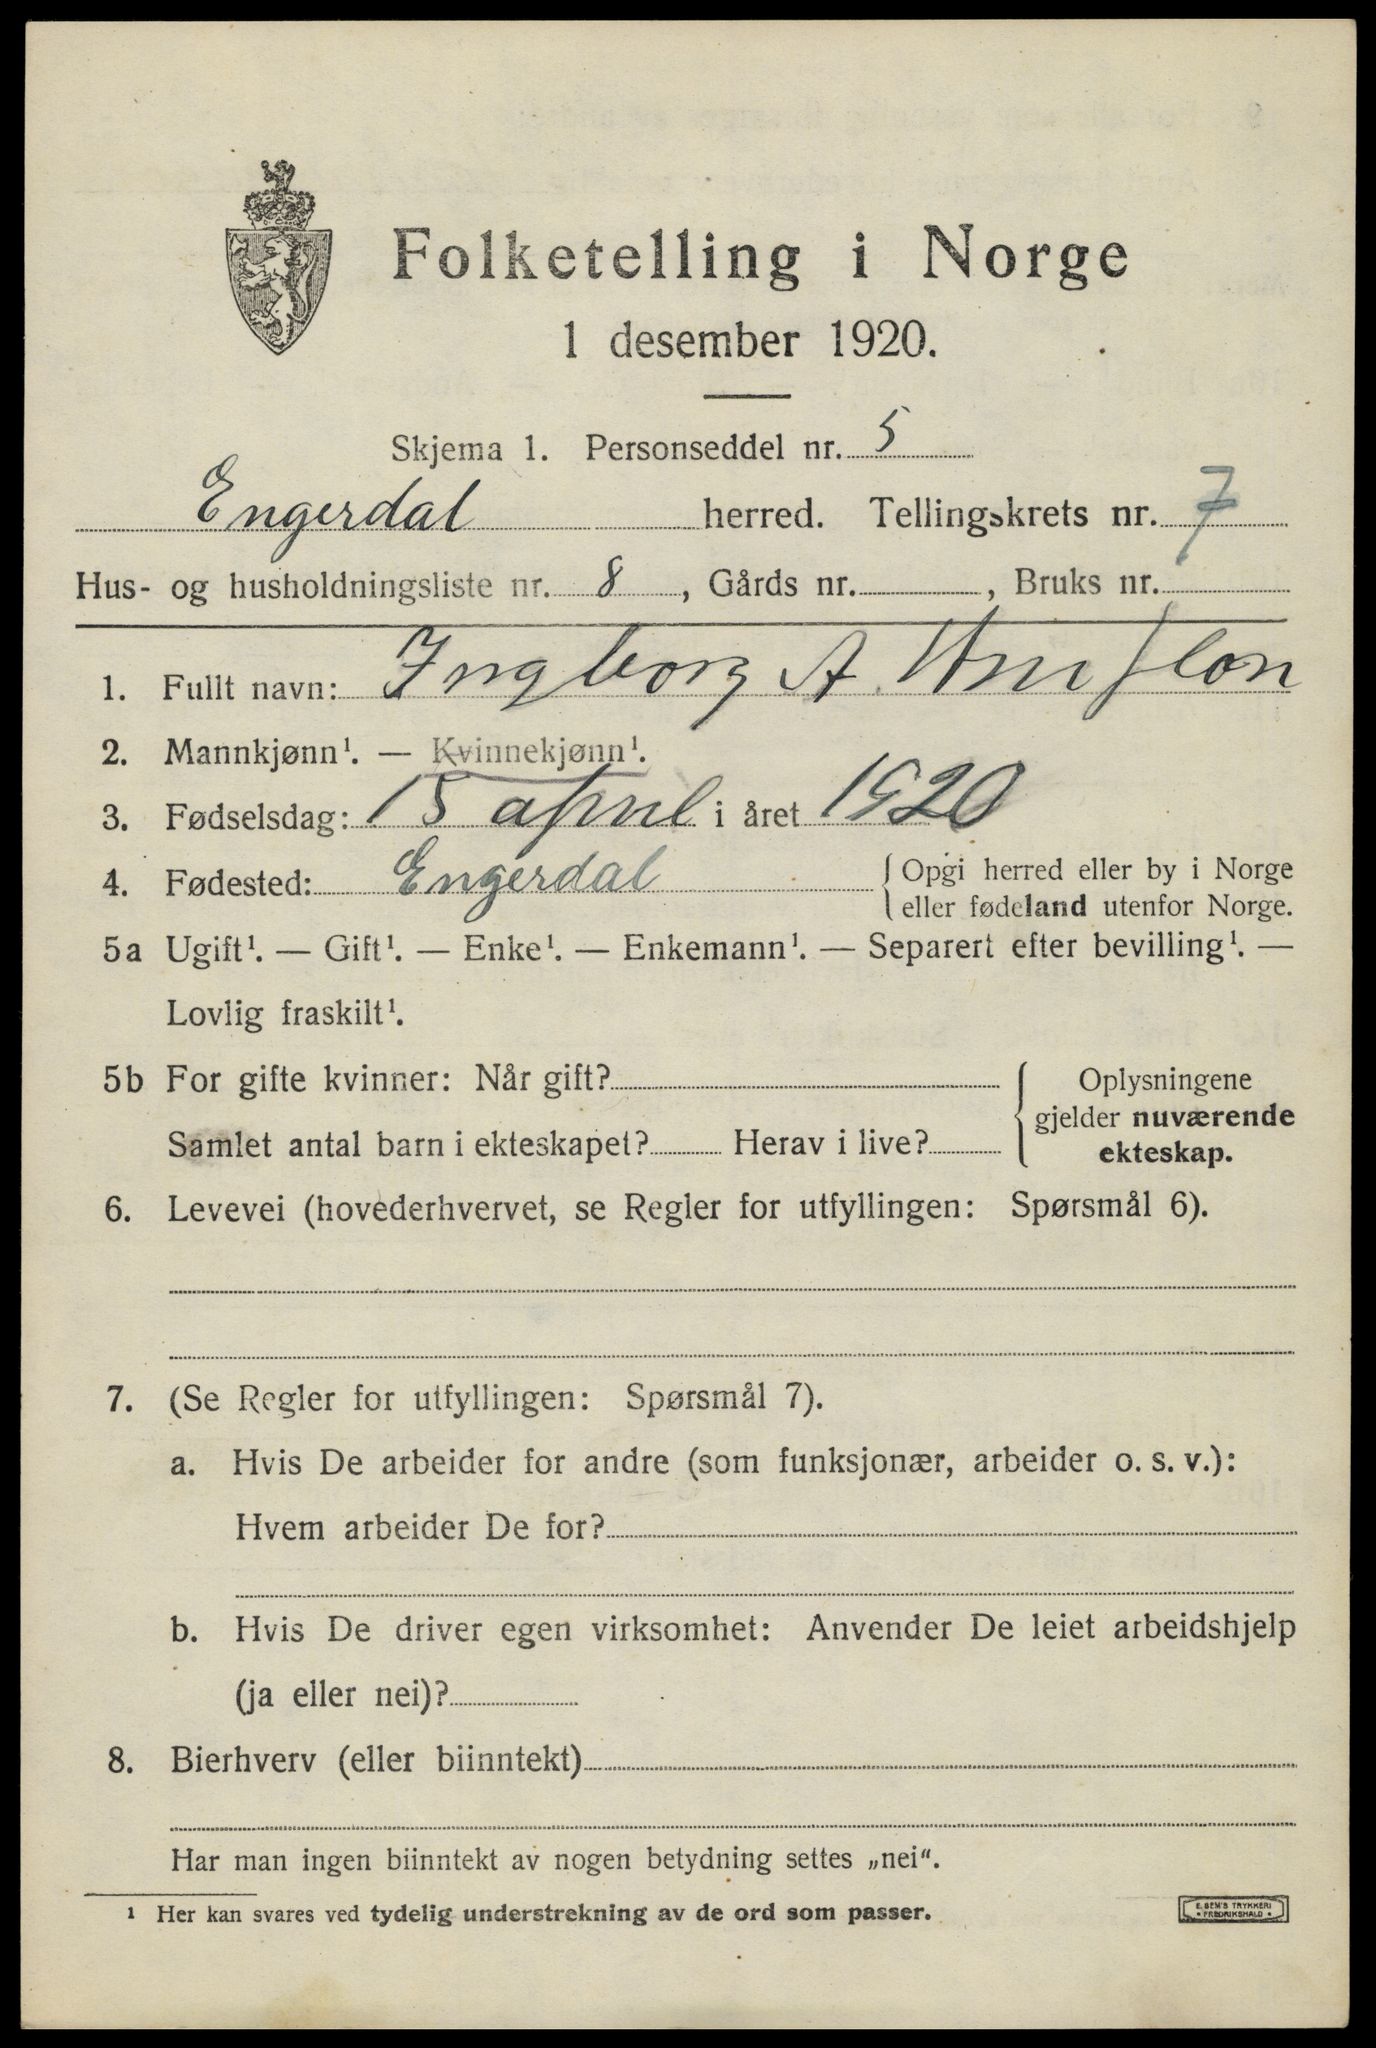 Folketelling i Norge
1 desember 1920.
Skjema 1. Personseddel nr. 5
Engerdal herred. Tellingskrets nr. 7
Hus- og husholdningsliste nr. 8, Gårds nr. , Bruks nr.
1. Fullt navn: Ingborg A.
2. Mannkjønn¹. — Kvinnekjønn¹.
3. Fødselsdag: 15 april i året 1920
4. Fødested: Engerdal {Opgi herred eller by i Norge
eller fødeland utenfor Norge.
5a Ugift¹. — Gift¹. — Enke¹. — Enkemann¹. — Separert efter bevilling¹. —
Lovlig fraskilt¹.
5b For gifte kvinner: Når gift? { Oplysningene
gjelder nuværende
Samlet antal barn i ekteskapet? Herav i live? ekteskap.
6. Levevei (hovederhvervet, se Regler for utfyllingen: Spørsmål 6).
7. (Se Regler for utfyllingen: Spørsmål 7).
a. Hvis De arbeider for andre (som funksjonær, arbeider o. s. v.):
Hvem arbeider De for?
b. Hvis De driver egen virksomhet: Anvender De leiet arbeidshjelp
(ja eller nei)?
8. Bierhverv (eller biinntekt)
Har man ingen biinntekt av nogen betydning settes „nei“.
¹ Her kan svares ved tydelig understrekning av de ord som passer.
E. SEM'S TRYKKERI
• FREDRIKSHALD •